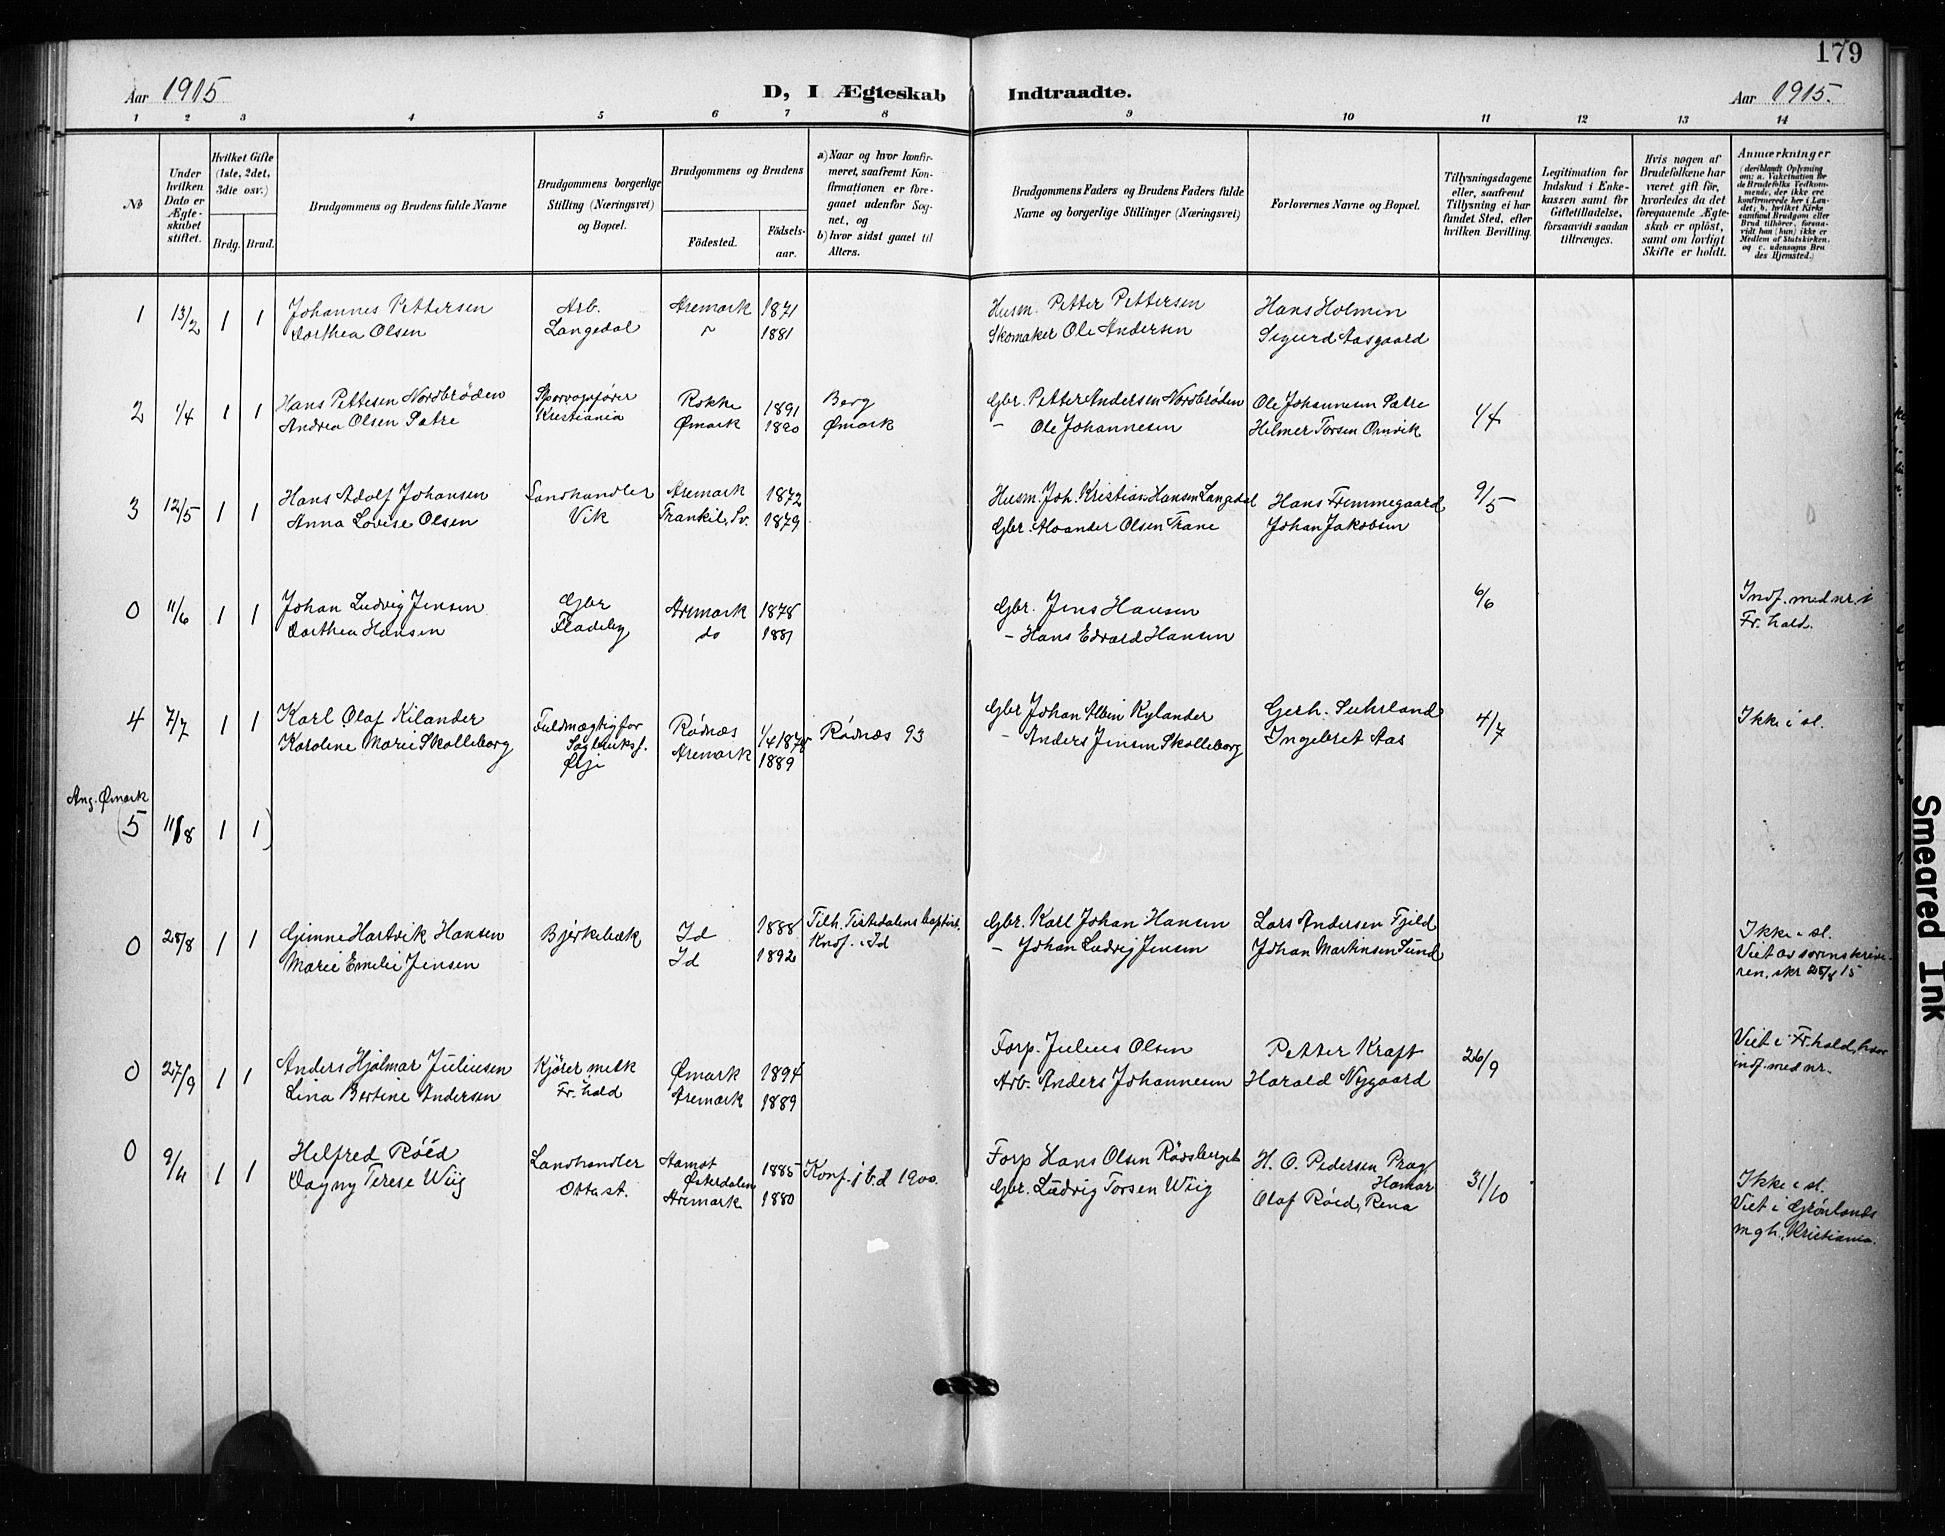 179
Aar 1915
D, I Ægteskab Indtraadte.
Aar 1915.
1 2 3 4 5 6 7 8 9 10 11 12 13 14
№
Under hvilken Dato er Ægteskabet stiftet.
Hvilket Gifte (1ste, 2det, 3die osv.)
Brdg. Brud.
Brudgommens og Brudens fulde Navne
Brudgommens borgerlige Stilling (Næringsvei) og Bopæl.
Brudgommens og Brudens
Fødested.
Fødselsaar.
a) Naar og hvor konfirmeret, saafremt Konfirmationen er foregaaet udenfor Sognet, og
b) hvor sidst gaaet til Alters.
Brudgommens Faders og Brudens Faders fulde Navne og borgerlige Stillinger (Næringsvei)
Forlovernes Navne og Bopæl.
Tillysningsdagene eller, saafremt Tillysning ei har fundet Sted, efter hvilken Bevilling.
Legitimation for Indskud i Enkekassen samt for Giftetilladelse, forsaavidt saadan tiltrænges.
Hvis nogen af Brudefolkene har været gift før, hvorledes da det foregaaende Ægteskab er opløst, samt om lovligt Skifte er holdt.
Anmærkninger
(deriblandt Oplysning om: a. Vakcination for de Brudefolks Vedkommende, der ikke ere konfirmerede her i Landet; b. hvilket Kirkesamfund Brudgom eller Brud tilhører, forsaavidt han (hun) ikke er Medlem af Statskirken, og c. udensogns Brudes Hjemsted.)
1 13/2 1 1 Johannes Pettersen Arb. Aremark 1871 Husm. Petter Pettersen Hans Holmen
Dorthea Olsen Langedal " 1881 Skomaker Ole Andersen Sigurd Aasgaard
2 1/4 1 1 Hans Pettesen Nordbrøden Sporvognfører Rokke 1891 Berg Gbr. Petter Andersen Nordbrøden Ole Johannesen Sætre 1/4
Andrea Olsen Sætre Kristiania Ømark 1890 Ømark - Ole Johannesen Helmer Torsen Ørnvik
3 12/5 1 1 Hans Adolf Johansen Landhandler Aremark 1872 Husm. Joh. Kristian Hansen Langedal Hans Fremmegaard 9/5
Anna Lovise Olsen Vik Trankil, Sv. 1879 Gbr. Alvander Olsen Trane Johan Jakobsen
0 11/6 1 1 Johan Ludvig Jensen Gbr Aremark 1878 Gbr. Jens Hansen 6/6 Indf. med nr. i
Dorthea Hansen Fladeby do 1881 - Hans Edvald Hansen Fr.hald.
4 7/7 1 1 Karl Olaf Kilander Fuldmægtig for Rødnæs 1/4 1878 Rødnæs 93 Gbr Johan Albin Kylander Gerh. Suhrland 4/7 Ikke i sl.
Karoline Marie Skolleborg Ørje Aremark 1889 - Anders Jensen Skolleborg Ingebret Aas
Ang. Ømark
(5 11/8 1 1)
0 28/8 1 1 Gimne Hartvik Hansen Bjerkebæk Id 1888 Tilh. Tistedalens baptist. Gbr. Karl Johan Hansen Lars Andersen Fjeld Ikke i sl.
Marie Emelie Jensen Id 1892 Knof. i Id - Johan Ludvig Jensen Johan Martinsen Lund Viet av sorenskrive-
ren, skr 28/8 15
0 27/9 1 1 Anders Hjalmar Juliusen Kjører melk Ømark 1894 Forp. Julius Olsen Petter Kraft 26/9 Viet i Fr.hald, hvor
Lina Bertine Andersen Fr.hald Aremark 1889 Arb. Anders Johannesen Harald Nygaard indf. med nr.
0 9/11 1 1 Helfred Røed Landhandler Aamot Østerdalen 1885 Konf. i b.d 1900. Forp Hans Olsen Rødsberget H. O. Pedersen Præg Hamar 31/10 Ikke i sl.
Dagny Terese Wiig Otta st. Aremark 1880 Gbr. Ludvig Torsen Wiig Olaf Røed, Rena Viet i Grønlands
mgh. Kristiania.
Smeared Ink